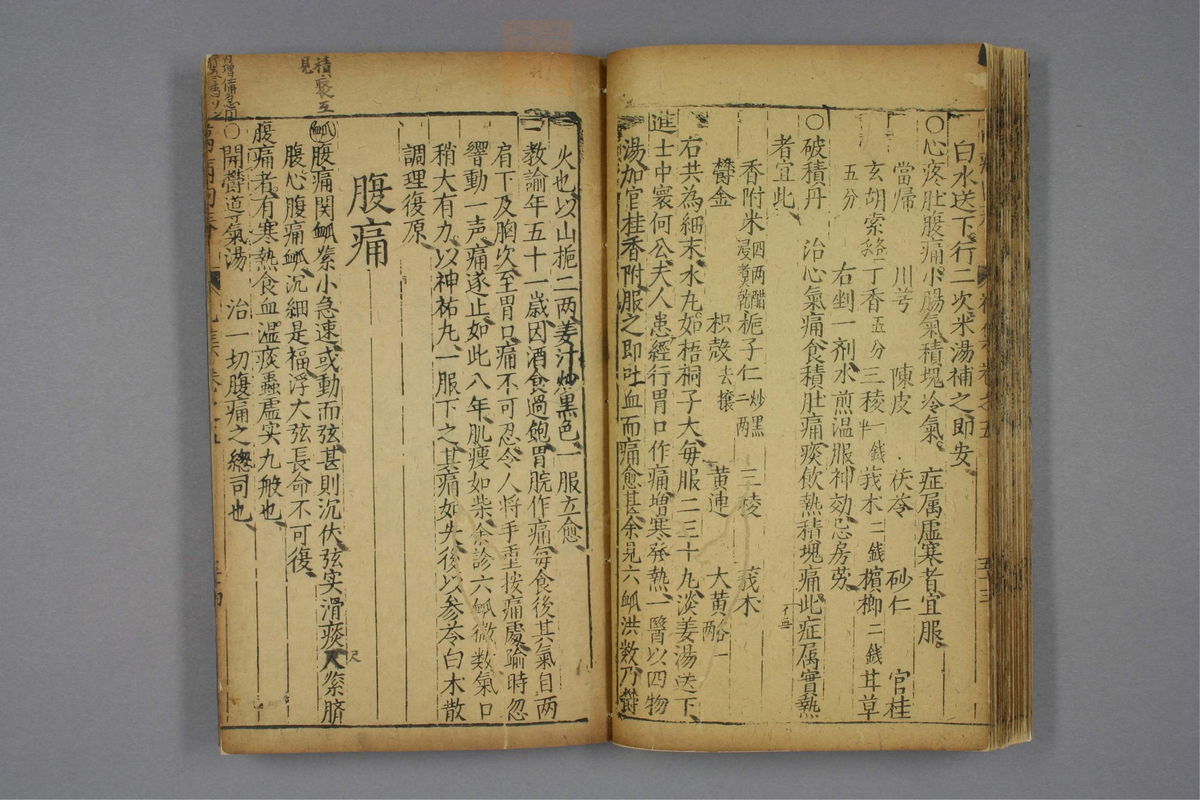 白水送下行二次米湯補之即安
〇心疼肚腹痛小腸氣積塊冷氣 症属虛寒者宜服
當歸 川芎 陳皮 茯苓 砂仁 官桂
玄胡索各 丁香五分 三稜一錢 莪朮二錢 檳榔二錢 甘草
五分
右剉一剤水煎温服神効忌房劳
〇破積丹 治心氣痛食積肚痛痰飲熱積塊痛此症属實熱
者宜此
香附米四两醋浸煮乾 栀子仁炒黑二两 三稜 莪朮
欝金 枳殼去穰 黄連 大黄各一两
右共為細末水丸如梧桐子大每服二三十丸淡姜湯送下
進士中寰何公夫人患經行胃口作痛增寒發熱一醫以四物
湯加官桂香附服之即吐血而痛愈甚余見六脈洪数乃欝
火也以山栀二两姜汁炒黑色一服立愈
一教諭年五十一歲因酒食過飽胃脘作痛每食後其氣自两
肩下及胸次至胃口痛不可忍令人将手重按痛處瑜時忽
響動一声痛遂止如此八年肌瘦如柴余診六脈微数氣口
稍大有力以神祐丸一服下之其痛如失後以参苓白朮散
調理復原
腹痛
脈腹痛関脈緊小急速或動而弦甚則沉伏弦实滑痰尺緊臍
腹心腹痛脈沉細是福浮大弦長命不可復
腹痛者有寒熱食血濕痰蟲虚实九般也
〇開欝道氣湯 治一切腹痛之總司也
積聚互
見